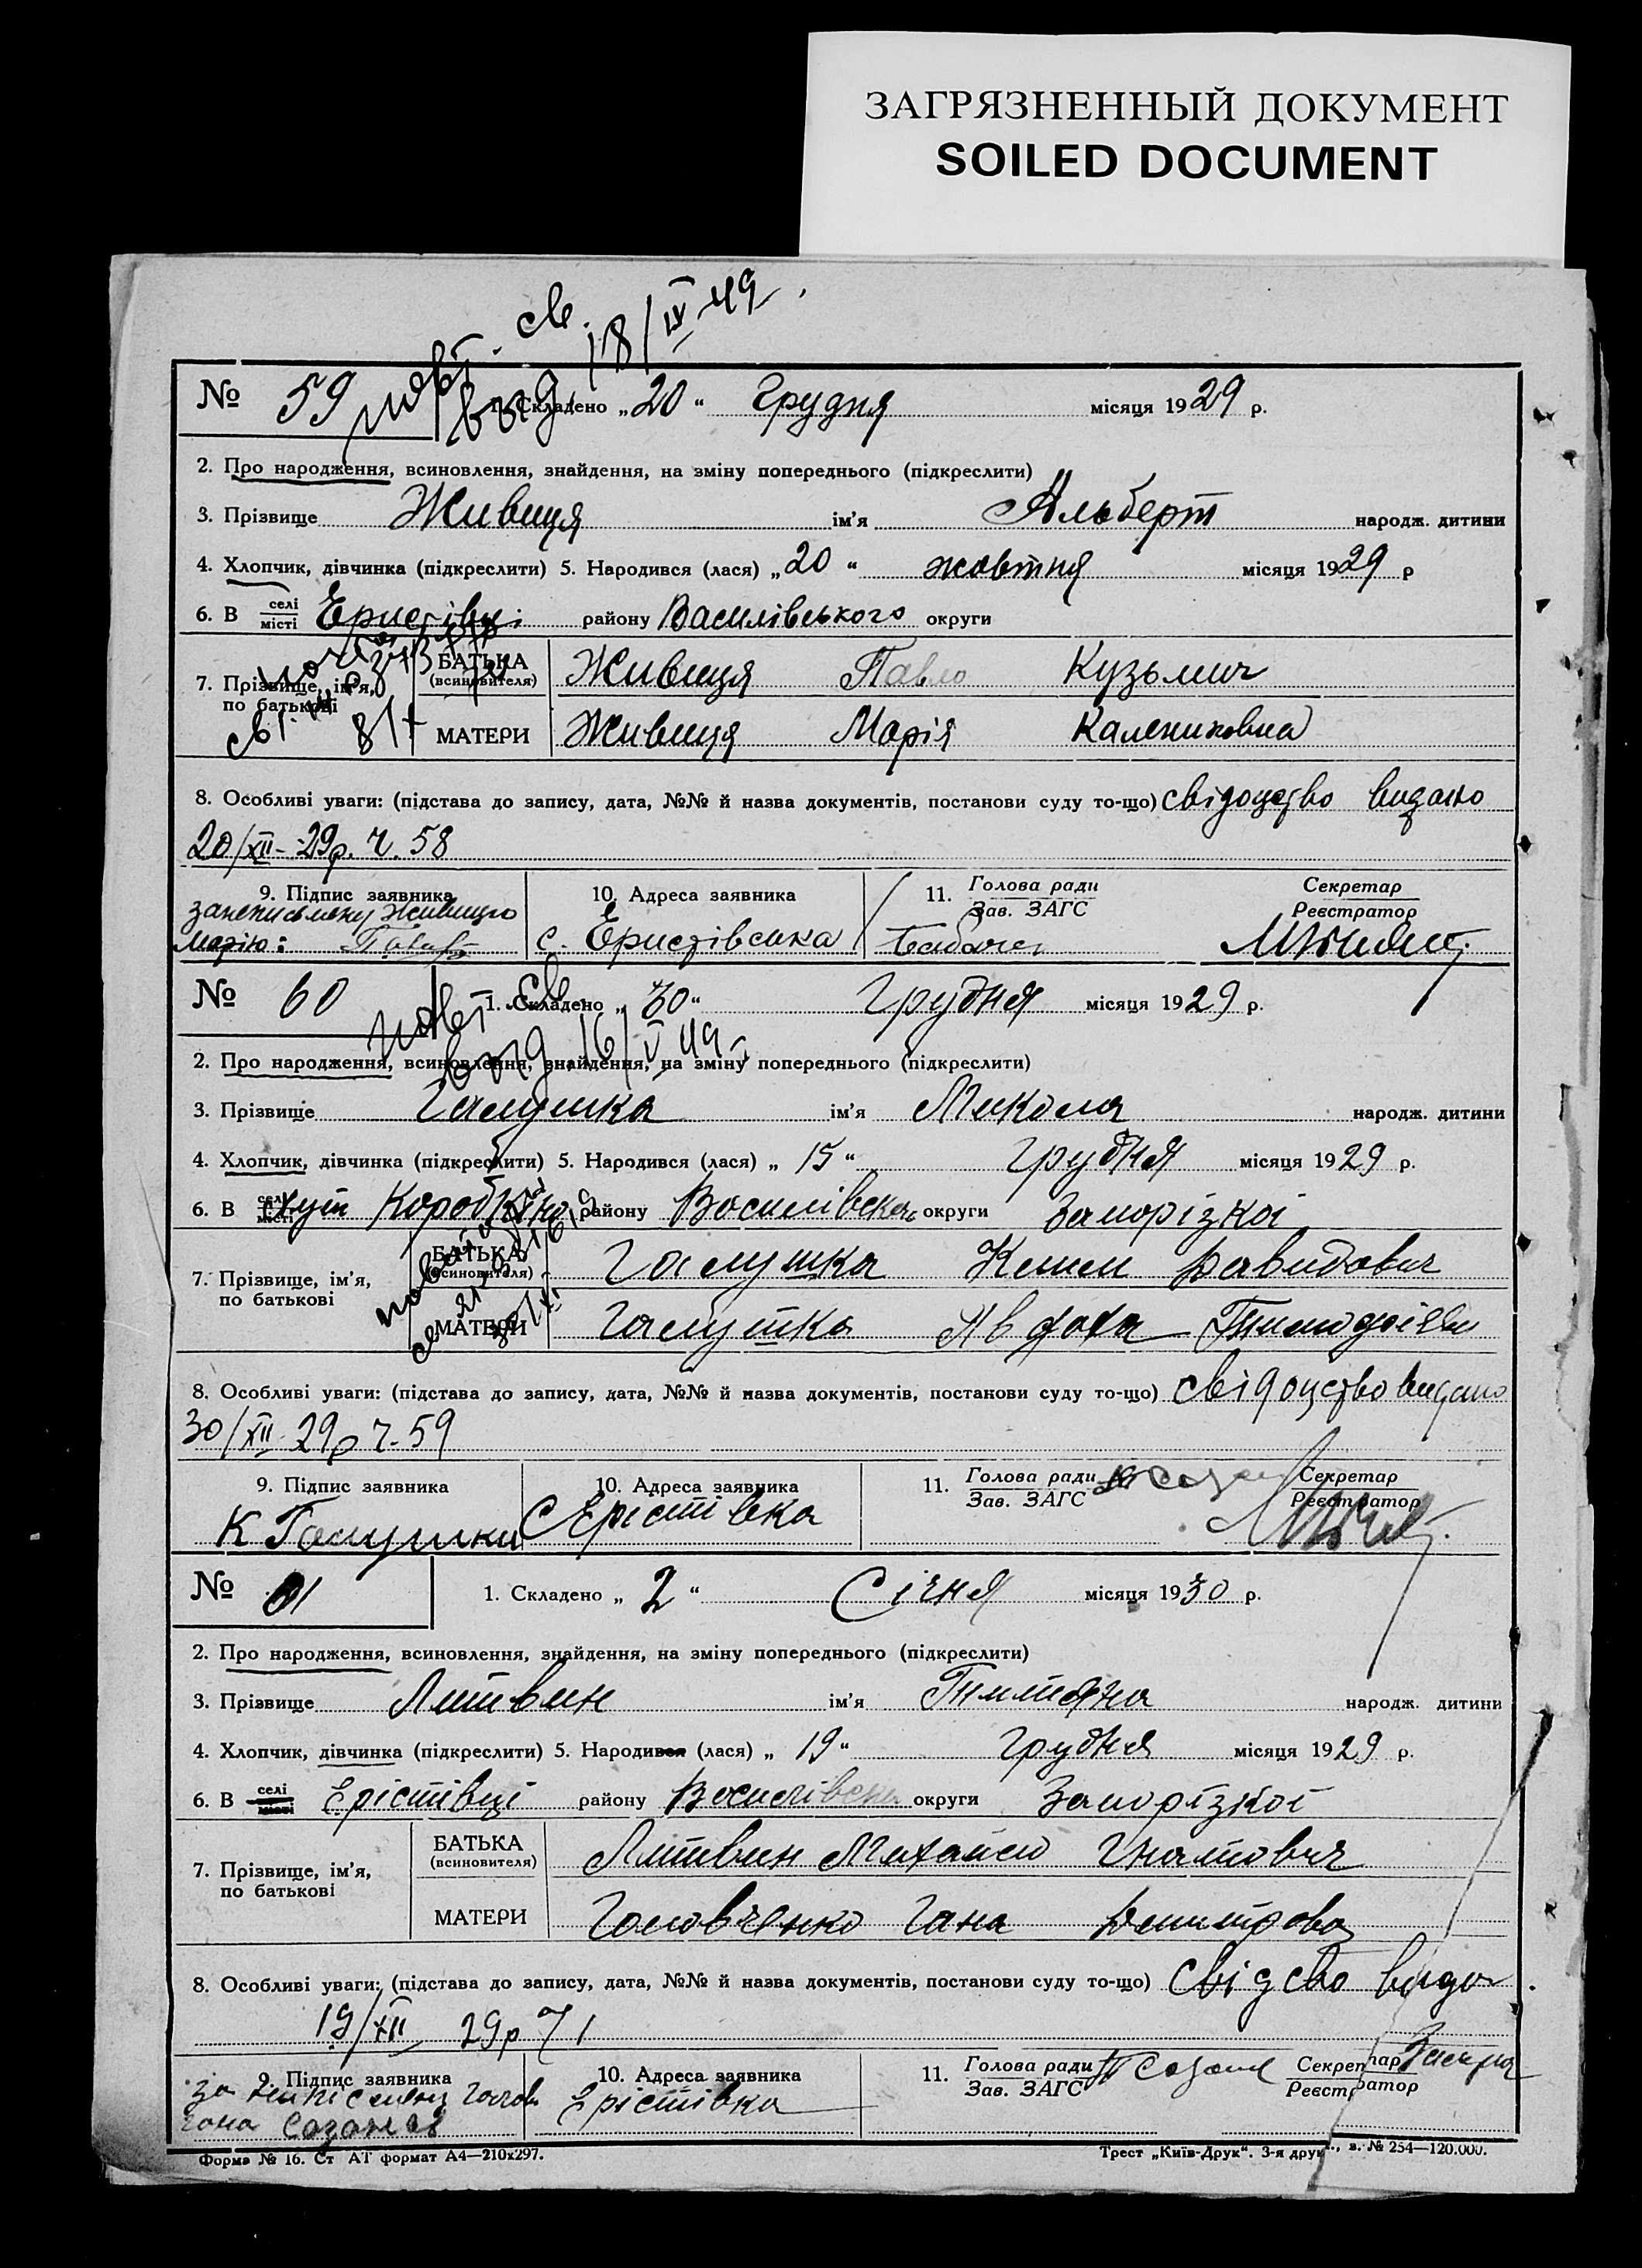 ЗАГРЯЗНЕННЫЙ ДОКУМЕНТ
SOILED DOCUMENT
св. 18/IX 49
№ 59 1. Складено „20“ Грудня місяця 1929 р.
2. Про народження, всиновлення, знайдення, на зміну попереднього (підкреслити)
3. Прізвище Живиця ім'я Альберт народж. дитини
4. Хлопчик, дівчинка (підкреслити) 5. Народився (лася) „20“ жовтня місяця 1929 р
6. В селі місті району Василівського округи
7. Прізвище, ім'я, по батькові
БАТЬКА (всиновителя) Живиця Павло Кузьмич
МАТЕРИ Живиця Марія Калениковна
8. Особливі уваги: (підстава до запису, дата, №№ й назва документів, постанови суду то-що) свідоцтво видано
20/XII-29р. ч. 58
9. Підпис заявника 10. Адреса заявника 11. Голова ради Зав. ЗАГС Секретар Реєстратор
Живицю
Марію: с. Еристівська
№ 60 1. Складено „30“ Грудня місяця 1929 р.
выд 16/V 49
2. Про народження, всиновлення, знайдення, на зміну попереднього (підкреслити)
3. Прізвище Галушка ім'я Микола народж. дитини
4. Хлопчик, дівчинка (підкреслити) 5. Народився (лася) „15“ Грудня місяця 1929 р.
6. В селі місті хут району округи Запорізкої
7. Прізвище, ім'я, по батькові
БАТЬКА (всиновителя) Галушка Клим Давидович
МАТЕРИ Галушка
8. Особливі уваги: (підстава до запису, дата, №№ й назва документів, постанови суду то-що) свідоцтво видано
30/XII 29р ч. 59
9. Підпис заявника 10. Адреса заявника 11. Голова ради Зав. ЗАГС Секретар Реєстратор
К Галушка С Ерістівка
№ 61 1. Складено „2“ Січня місяця 1930 р.
2. Про народження, всиновлення, знайдення, на зміну попереднього (підкреслити)
3. Прізвище Литвин ім'я народж. дитини
4. Хлопчик, дівчинка (підкреслити) 5. Народився (лася) „19“ Грудня місяця 1929 р.
6. В селі місті Ерістівці району округи Запорізкої
7. Прізвище, ім'я, по батькові
БАТЬКА (всиновителя) Литвин Михайло Гнатович
МАТЕРИ Головченко Гана
8. Особливі уваги: (підстава до запису, дата, №№ й назва документів, постанови суду то-що)
19/XII 29р
9. Підпис заявника 10. Адреса заявника 11. Голова ради Зав. ЗАГС Секретар Реєстратор
Ерістівка
Форма № 16. Ст АТ формат А4—210х297. Трест „Київ-Друк“. 3-я друк., з. № 254—120.000.